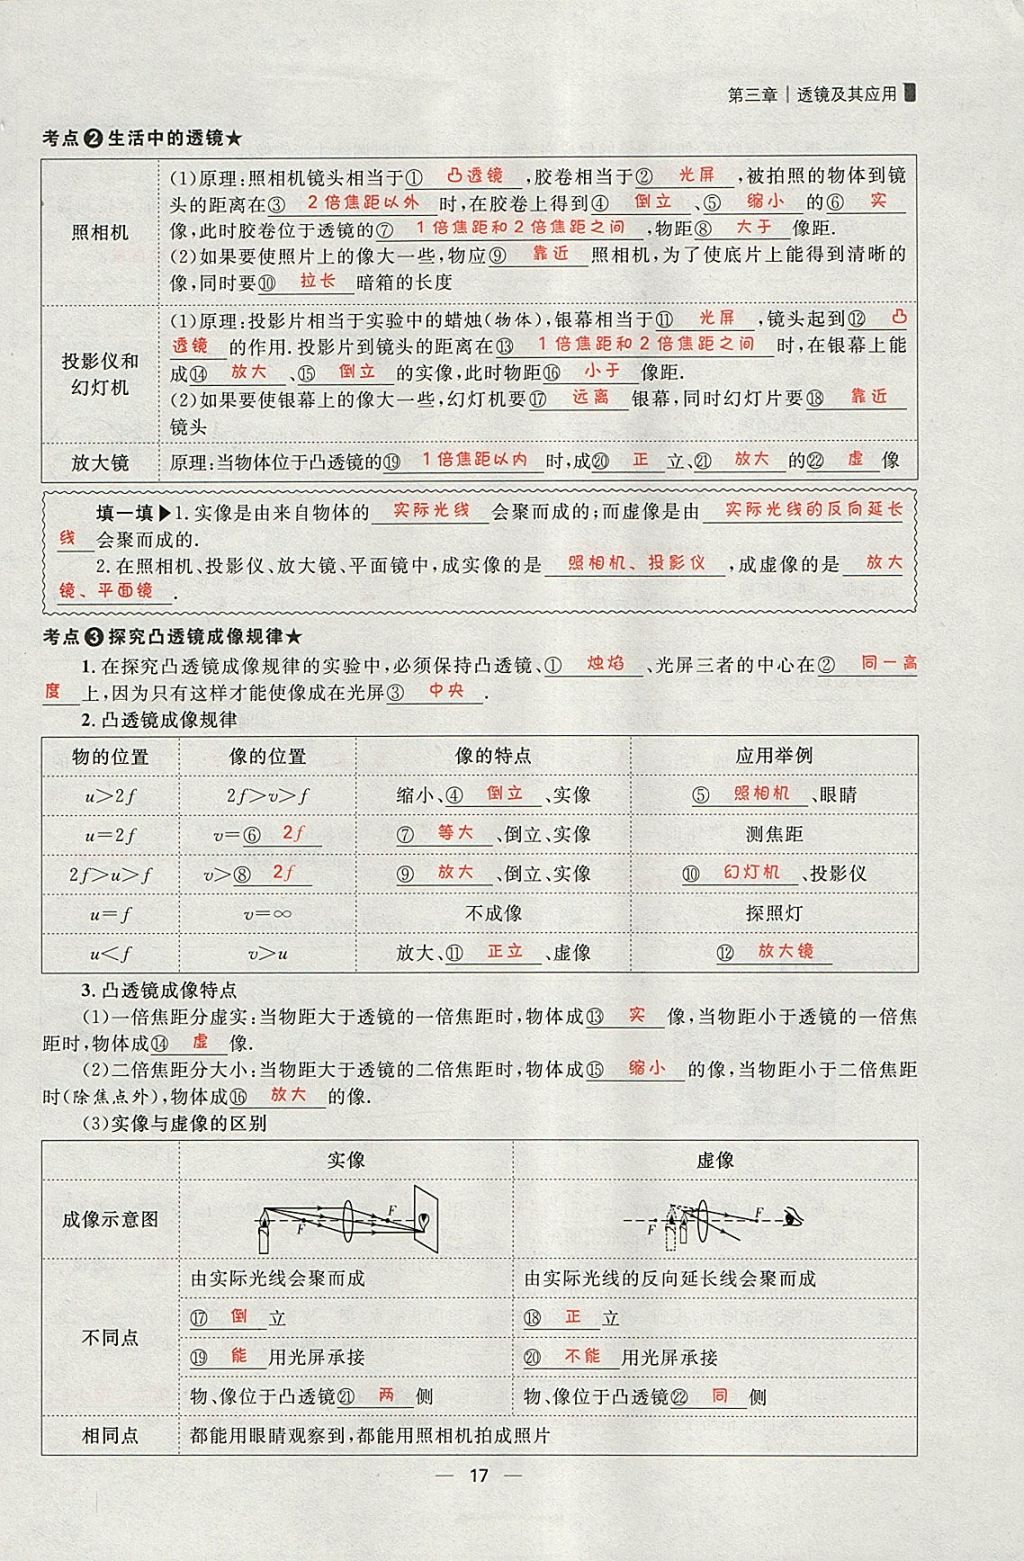 第三章 | 透镜及其应用
考点❷生活中的透镜★
照相机
(1)原理:照相机镜头相当于① 凸透镜 ,胶卷相当于② 光屏 ,被拍照的物体到镜
头的距离在③ 2倍焦距以外 时,在胶卷上得到④ 倒立 、⑤ 缩小 的⑥ 实
像,此时胶卷位于透镜的⑦ 1倍焦距和2倍焦距之间 ,物距⑧ 大于 像距.
(2)如果要使照片上的像大一些,物应⑨ 靠近 照相机,为了使底片上能得到清晰的
像,同时要⑩ 拉长 暗箱的长度
投影仪和
幻灯机
(1)原理:投影片相当于实验中的蜡烛(物体),银幕相当于⑪ 光屏 ,镜头起到⑫ 凸
透镜 的作用.投影片到镜头的距离在⑬ 1倍焦距和2倍焦距之间 时,在银幕上能
成⑭ 放大 、⑮ 倒立 的实像,此时物距⑯ 小于 像距.
(2)如果要使银幕上的像大一些,幻灯机要⑰ 远离 银幕,同时幻灯片要⑱ 靠近
镜头
放大镜
原理:当物体位于凸透镜的⑲ 1倍焦距以内 时,成⑳ 正 立、㉑ 放大 的㉒ 虚 像
填一填▶1.实像是由来自物体的 实际光线 会聚而成的;而虚像是由 实际光线的反向延长
线 会聚而成的.
2.在照相机、投影仪、放大镜、平面镜中,成实像的是 照相机、投影仪 ,成虚像的是 放大
镜、平面镜 .
考点❸探究凸透镜成像规律★
1.在探究凸透镜成像规律的实验中,必须保持凸透镜、① 烛焰 、光屏三者的中心在② 同一高
度 上,因为只有这样才能使像成在光屏③ 中央 .
2.凸透镜成像规律
物的位置 像的位置 像的特点 应用举例
u>2f 2f>v>f 缩小、④ 倒立 、实像 ⑤ 照相机 、眼睛
u=2f v=⑥ 2f ⑦ 等大 、倒立、实像 测焦距
2f>u>f v>⑧ 2f ⑨ 放大 、倒立、实像 ⑩ 幻灯机 、投影仪
u=f v=∞ 不成像 探照灯
u<f v>u 放大、⑪ 正立 、虚像 ⑫ 放大镜
3.凸透镜成像特点
(1)一倍焦距分虚实:当物距大于透镜的一倍焦距时,物体成⑬ 实 像,当物距小于透镜的一倍焦
距时,物体成⑭ 虚 像.
(2)二倍焦距分大小:当物距大于透镜的二倍焦距时,物体成⑮ 缩小 的像,当物距小于二倍焦距
时(除焦点外),物体成⑯ 放大 的像.
(3)实像与虚像的区别
实像 虚像
成像示意图
F F F F
不同点
由实际光线会聚而成 由实际光线的反向延长线会聚而成
⑰ 倒 立 ⑱ 正 立
⑲ 能 用光屏承接 ⑳ 不能 用光屏承接
物、像位于凸透镜㉑ 两 侧 物、像位于凸透镜㉒ 同 侧
相同点 都能用眼睛观察到,都能用照相机拍成照片
— 17 —